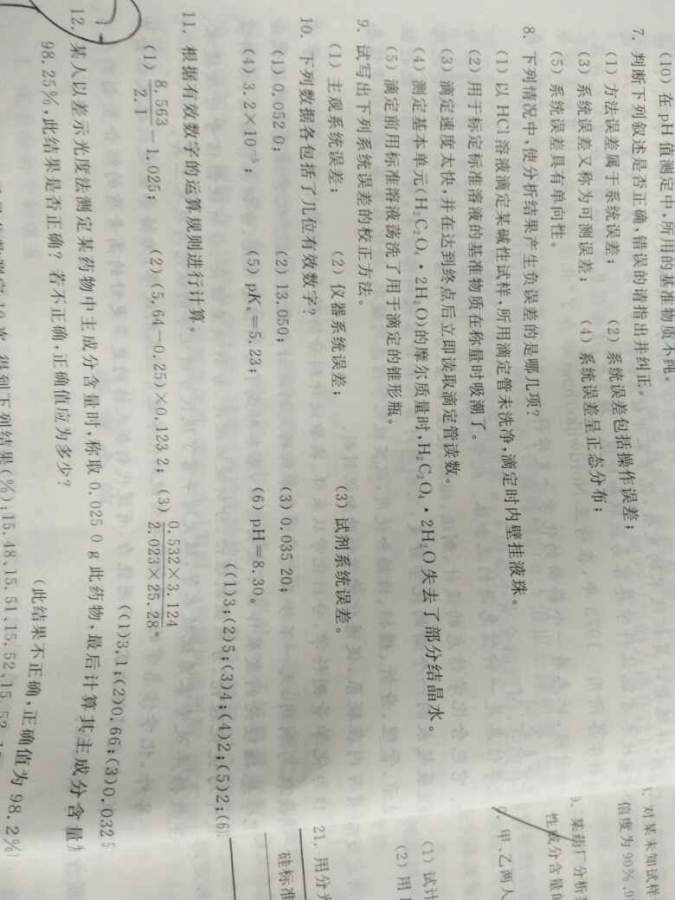 (10) 在 pH 值测定中,所用的基准物质不纯。
7. 判断下列叙述是否正确,错误的请指出并纠正。
(1) 方法误差属于系统误差; (2) 系统误差包括操作误差;
(3) 系统误差又称为可测误差; (4) 系统误差呈正态分布;
(5) 系统误差具有单向性。
8. 下列情况中,使分析结果产生负误差的是哪几项?
(1) 以 HCl 溶液滴定某碱性试样,所用滴定管未洗净,滴定时内壁挂液珠。
(2) 用于标定标准溶液的基准物质在称量时吸潮了。
(3) 滴定速度太快,并在达到终点后立即读取滴定管读数。
(4) 测定基本单元(H₂C₂O₄·2H₂O)的摩尔质量时,H₂C₂O₄·2H₂O失去了部分结晶水。
(5) 滴定前用标准溶液荡洗了用于滴定的锥形瓶。
9. 试写出下列系统误差的校正方法。
(1) 主观系统误差; (2) 仪器系统误差; (3) 试剂系统误差。
10. 下列数据各包括了几位有效数字?
(1) 0.052 0; (2) 13.050; (3) 0.035 20;
(4) 3.2×10⁻⁵; (5) pKₐ=5.23; (6) pH=8.30。
((1)3;(2)5;(3)4;(4)2;(5)2;(6)
11. 根据有效数字的运算规则进行计算。
(1) 8.563/2.1 − 1.025; (2) (5.64−0.25)×0.123 2; (3) 0.532×3.124/2.023×25.28。
((1)3.1;(2)0.66;(3)0.0325
12. 某人以差示光度法测定某药物中主成分含量时,称取 0.025 0 g 此药物,最后计算其主成分含量为
98.25%,此结果是否正确?若不正确,正确值应为多少?
(此结果不正确,正确值为 98.2%)
10 次,得到下列结果(%):15.48、15.51、15.52、15.52
对某未知试样
信度为90%、9
9. 某药厂分析
性成分含量
甲、乙两人
(1) 试计
(2) 用
21. 用分光
硅标准